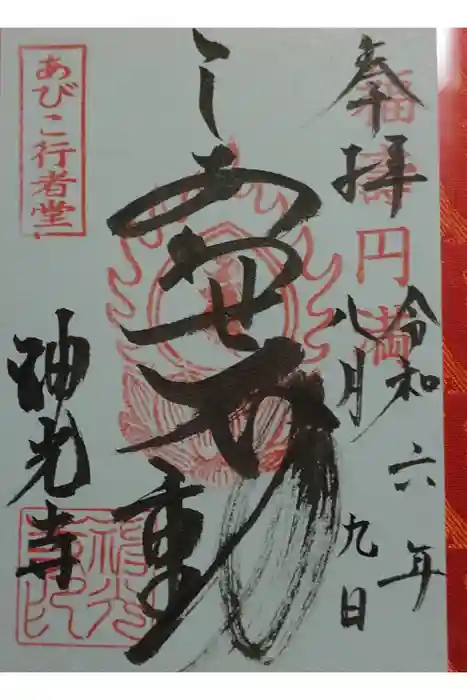 奉拝
福壽円満
令和六年
八月九日
しあわせ不動
あびこ行者堂
神光寺